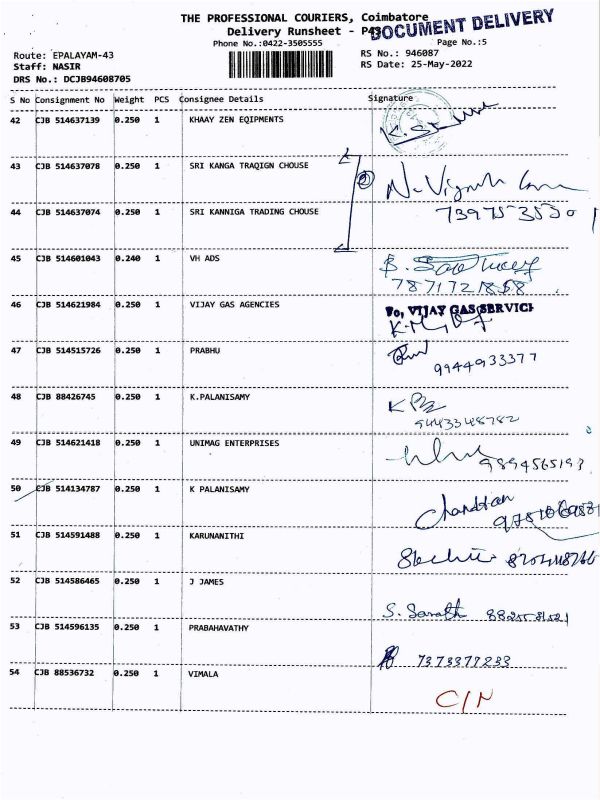 THE PROFESSIONAL COURIERS, Coimbatore
Delivery Runsheet - P43
DOCUMENT DELIVERY
Phone No.:0422-3505555
Page No.:5
Route: EPALAYAM-43
RS No.: 946087
Staff: NASIR
RS Date: 25-May-2022
DRS No.: DCJB94608705
S No Consignment No Weight PCS Consignee Details Signature
42 CJB 514637139 0.250 1 KHAAY ZEN EQIPMENTS
43 CJB 514637078 0.250 1 SRI KANGA TRAQIGN CHOUSE
2
7397535301
44 CJB 514637074 0.250 1 SRI KANNIGA TRADING CHOUSE
45 CJB 514601043 0.240 1 VH ADS
7871721858
46 CJB 514621984 0.250 1 VIJAY GAS AGENCIES
Fo, VIJAY GAS SERVICE
47 CJB 514515726 0.250 1 PRABHU
9944933377
48 CJB 88426745 0.250 1 K.PALANISAMY
9443348782
49 CJB 514621418 0.250 1 UNIMAG ENTERPRISES
9894565193
50 CJB 514134787 0.250 1 K PALANISAMY
51 CJB 514591488 0.250 1 KARUNANITHI
52 CJB 514586465 0.250 1 J JAMES
S. Sarath
53 CJB 514596135 0.250 1 PRABAHAVATHY
7373377233
54 CJB 88536732 0.250 1 VIMALA
C/N